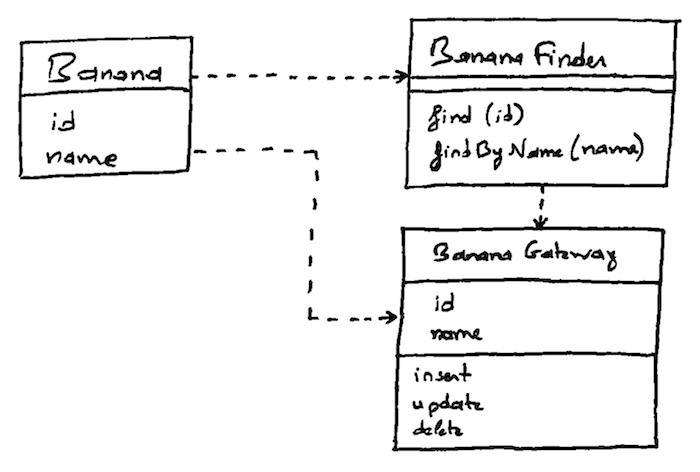 Banana
id
name
Banana Finder
find (id)
findByName (name)
Banana Gateway
id
name
insert
update
delete